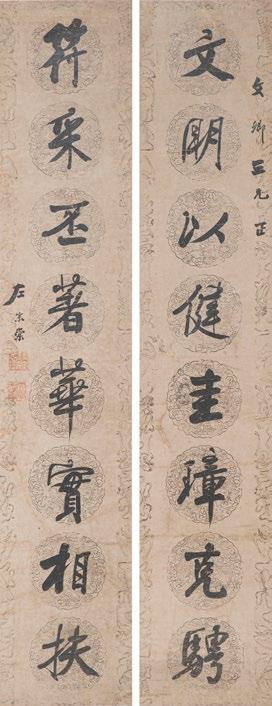 文卿三兄正
文明以健圭璋克騁
符采丕著華實相扶
左宗棠